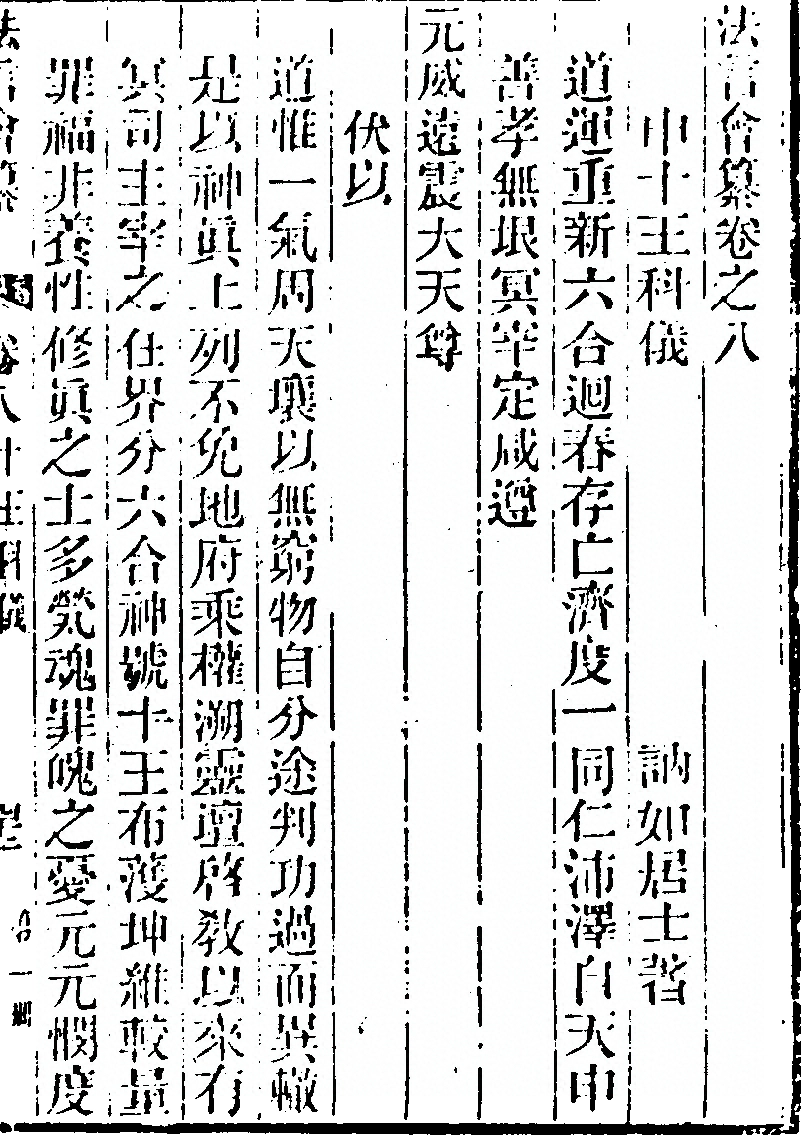 法言會纂卷之八
申十王科儀 訥如居士著
道運重新六合迴春存亡濟度一同仁沛澤自天申
善孝無垠冥宰定咸遵
元威遠震大天尊
伏以
道惟一氣周天壤以無窮物自分途判功過而異轍
是以神眞上列不免地府乘權溯靈壇啓教以來有
冥司主宰之任界分六合神號十王布濩坤維較量
罪福非養性修眞之士多煢魂罪魄之憂元元憫度
法言會纂 卷八十王科儀 一